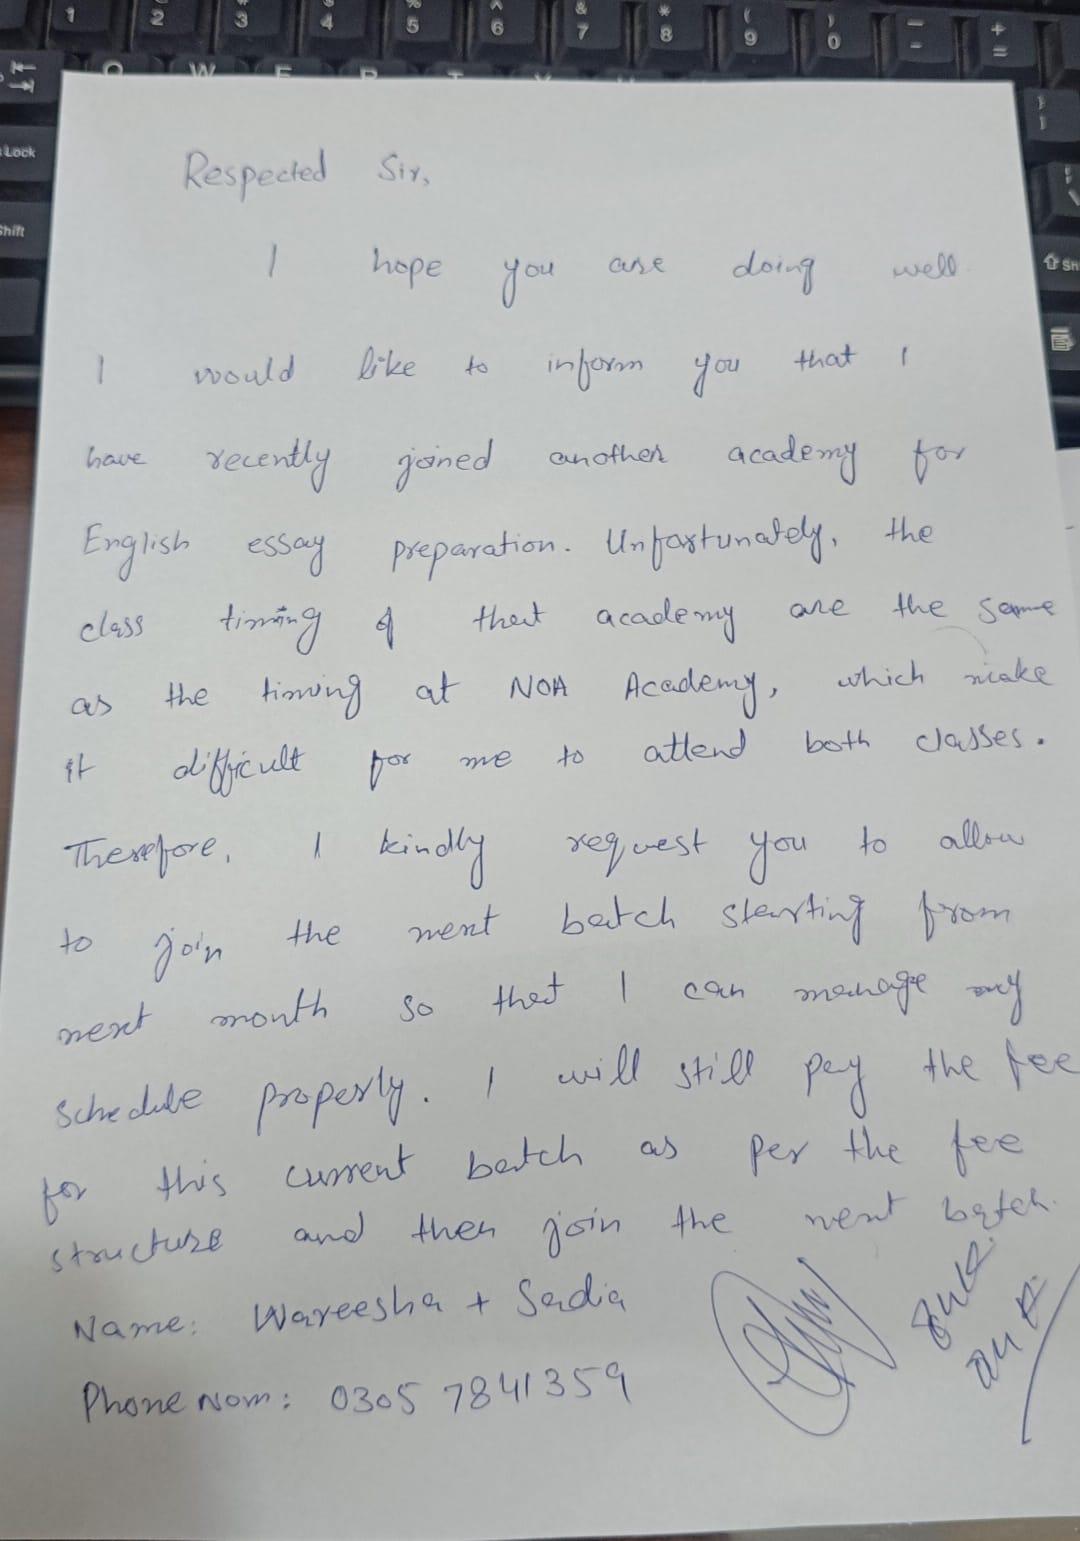 Respected Sir,
I hope you are doing well.
I would like to inform you that I
have recently joined another academy for
English essay preparation. Unfortunately, the
class timing of that academy are the same
as the timing at NOA Academy, which make
it difficult for me to attend both classes.
Therefore, I kindly request you to allow
to join the next batch starting from
next month so that I can manage my
schedule properly. I will still pay the fee
for this current batch as per the fee
structure and then join the next batch.
Name: Wareesha + Sadia
Phone Nom: 0305 7841359
1 2 3 4 5 6 7 8 9 0
Lock
Shift